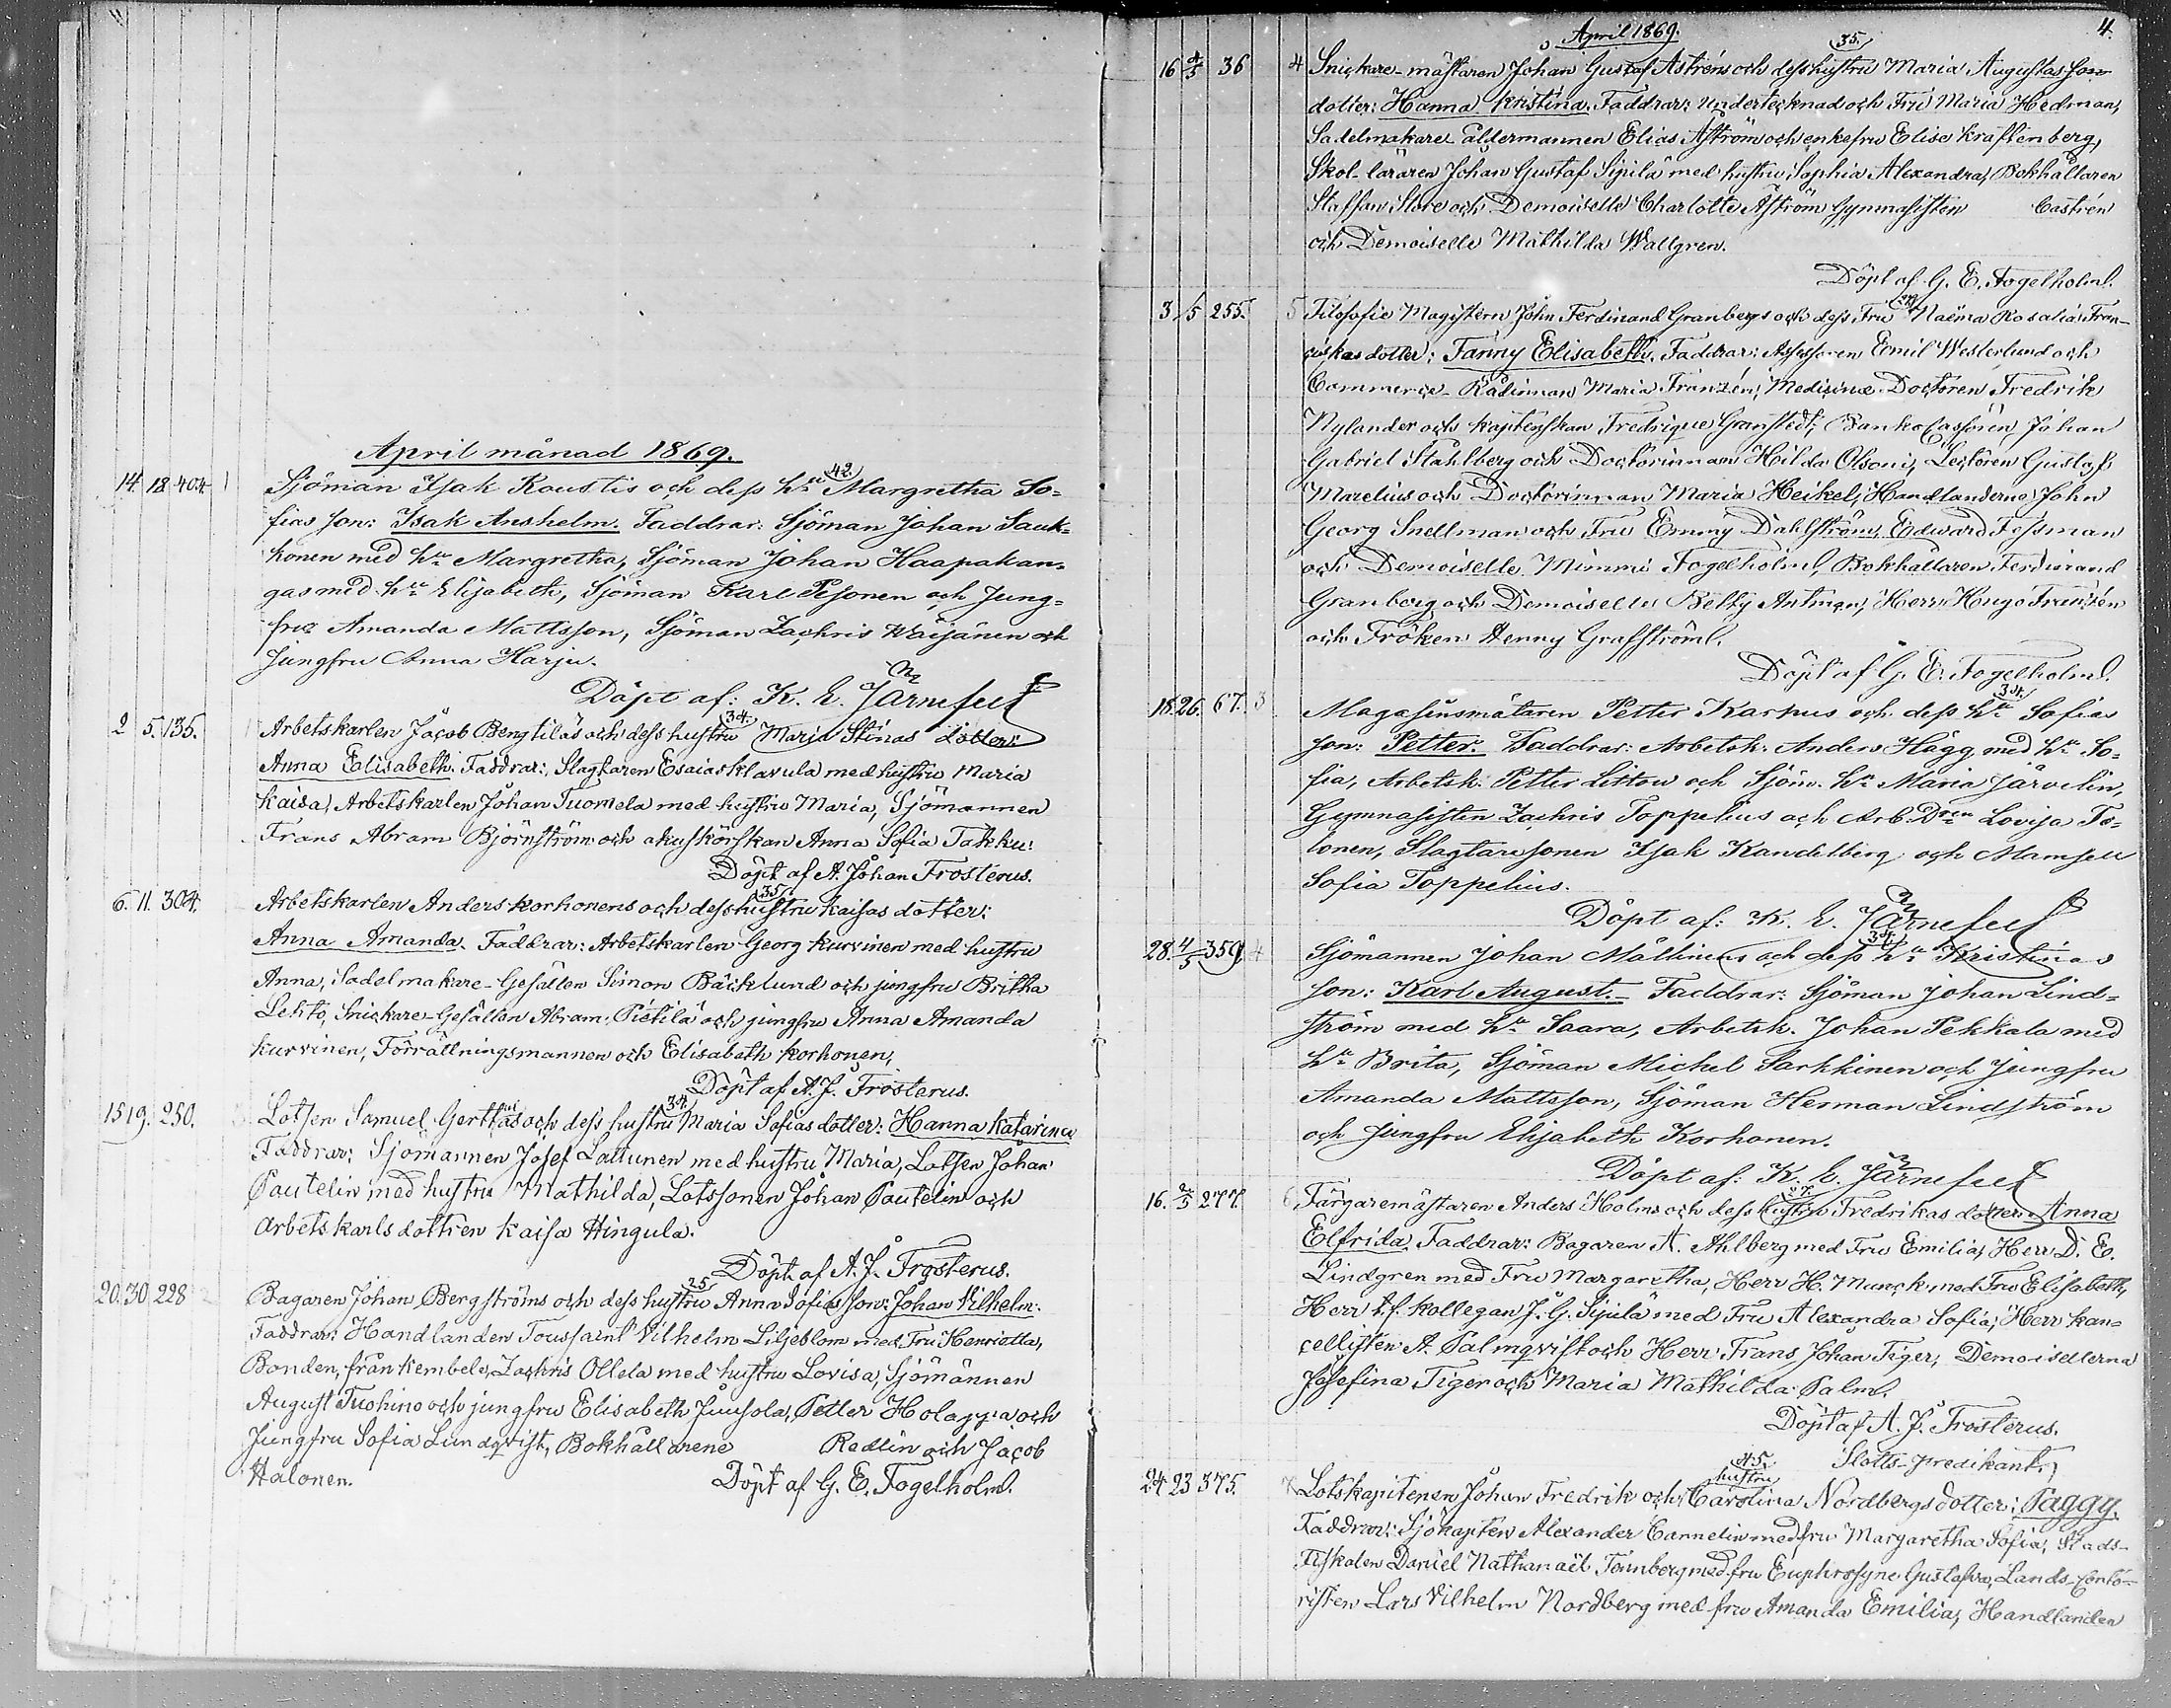 April månad 1869.
14. 18. 404. 1 Sjöman Isak Koustis och dess h:u 42. Margretha So=
fias son: Isak Anshelm. Faddrar: Sjöman Johan Sauk=
konen med h:u Margretha, Sjöman Johan Haapakan=
gas med h:u Elisabeth, Sjöman Karl Pesonen och Jung=
fru Amanda Mattsson, Sjöman Zachris Wäijänen och
Jungfru Anna Harju.
Döpt af: K. E. Järnefelt
2 5. 135. Arbetskarlen Jacob Bengtiläs och dess hustru 34. Maria Stinas dotter:
Anna Elisabeth. Faddrar: Slagtaren Esaias Klavula med hustru Maria
Kaisa, Arbetskarlen Johan Tuomela med hustru Maria, Sjömannen
Frans Abram Björnström och akuskörskan Anna Sofia Takku.
Döpt af A. Johan Frosterus.
6. 11. 304. Arbetskarlen Anders Korhonens och dess hustru 35. Kaisas dotter:
Anna Amanda. Faddrar: Arbetskarlen Georg Kurvinen med hustru
Anna, Sadelmakare-Gesällen Simon Bäcklund och jungfru Britha
Lehto, Snickare-Gesällen Abram Pietilä och jungfru Anna Amanda
Kurvinen, Förrättningsmannen och Elisabeth Korhonen,
Döpt af A. J. Frosterus.
15 19. 250. Lotsen Samuel Gerttas och dess hustru 34. Maria Sofias dotter: Hanna Katarina
Faddrar: Sjömannen Josef Lattunen med hustru Maria, Lotsen Johan
Pautelin med hustru Mathilda, Lotssonen Johan Pautelin och
Arbetskarlsdottren Kaisa Hingula.
Döpt af A. J. Frosterus.
20. 30 228 Bagaren Johan Bergströms och dess hustru 25 Anna Sofias son: Johan Vilhelm.
Faddrar: Handlanden Toussaint Vilhelm Liljeblom med Fru Henrietta,
Bonden från Kembele, Zachris Ollela med hustru Lovisa, Sjömännen
August Tuohino och jungfru Elisabeth Juusola, Petter Holappa och
Jungfru Sofia Lundqvist, Bokhållarene Redlin och Jacob
Halonen. Döpt af G. E. Fogelholm.
April 1869. 4.
16 4/5 36 4 Snickare-mästaren Johan Gustaf Åstréns och dess hustru 35. Maria Augustas
dotter: Hanna Kristina. Faddrar: undertecknad och Fru Maria Hedman,
Sadelmakare åldermannen Elias Åström och enkefru Elise Kraftenberg,
Skol-läraren Johan Gustaf Sipilä med hustru Sophia Alexandra, Bokhållaren
Staffan Slore och Demoiselle Charlotte Åström Gymnasisten Castrén
och Demoiselle Mathilda Wallgren.
Döpt af G. E. Fogelholm.
3 /5 255. 5 Filosofie Magistern John Ferdinand Granbergs och dess Fru Naëma Rosalia Fran-
ciskas dotter: Fanny Elisabeth. Faddrar: Assessoren Emil Westerlund och
Commerce-Rådinnan Maria Franzén, Medicine-Doctoren Fredrik
Nylander och Kaptenskan Fredrique Granstedt, Banko Cassören Johan
Gabriel Ståhlberg och Doctorinnan Hilda Olsoni, Lectoren Gustaf
Marelius och Doctorinnan Maria Heikel, Handlanderne John
Georg Snellman och Fru Emmy Dahlström, Edward Fessman
och Demoiselle Mimmi Fogelholm, Bokhållaren Ferdinand
Granberg och Demoiselle Betty Antman, Herr Hugo Franzén
och Fröken Henny Grafström.
Döpt af G. E. Fogelholm.
18 26. 67. 3 Magasinsmätaren Petter Karhus och dess h:u 34. Sofias
son: Petter. Faddrar: Arbetsk. Anders Hägg med h:u So=
fia, Arbetsk. Petter Littow och Sjöm. h:u Maria Järvelin,
Gymnasisten Zachris Toppelius och Arb. D:ren Lovisa To=
lonen, Slagtaresonen Isak Kandelberg och Mamsell
Sofia Toppelius.
Döpt af: K. E. Järnefelt
28. 4/5 359. 4 Sjömannen Johan Mällinens och dess h:u 34. Kristinas
son: Karl August. Faddrar: Sjöman Johan Lind=
ström med h:u Saara, Arbetsk. Johan Pekkala med
h:u Brita, Sjöman Michel Sarkkinen och Jungfru
Amanda Mattsson, Sjöman Herman Lindström
och Jungfru Elisabeth Korhonen.
Döpt af: K. E. Järnefelt
16. 2/5 277. 6 Färgaremästaren Anders Holms och dess hustru Fredrikas dotter: Anna
Elfrida. Faddrar: Bagaren A. Ahlberg med Fru Emilia, Herr D. E.
Lindgren med Fru Margaretha, Herr H. Munck med Fru Elisabeth,
Herr t.f. Kollegan J. G. Sipilä med Fru Alexandra Sofia, Herr Kan=
cellisten A. Palmqvist och Herr Frans Johan Tiger, Demoisellerna
Josefina Tiger och Maria Mathilda Palm.
Döpt af A. J. Frosterus.
Slotts-predikant.
24 23 375. 7 Lotskapitenen Johan Fredrik och hustru 45. Carolina Nordbergs dotter: Paggy.
Faddrar: Sjökapten Alexander Cannelin med fru Margaretha Sofia, Stads-
Fiskalen Daniel Nathanaël Fannberg med fru Euphrosyne Gustafva, Lands-Conto-
risten Lars Vilhelm Nordberg med fru Amanda Emilia, Handlanden